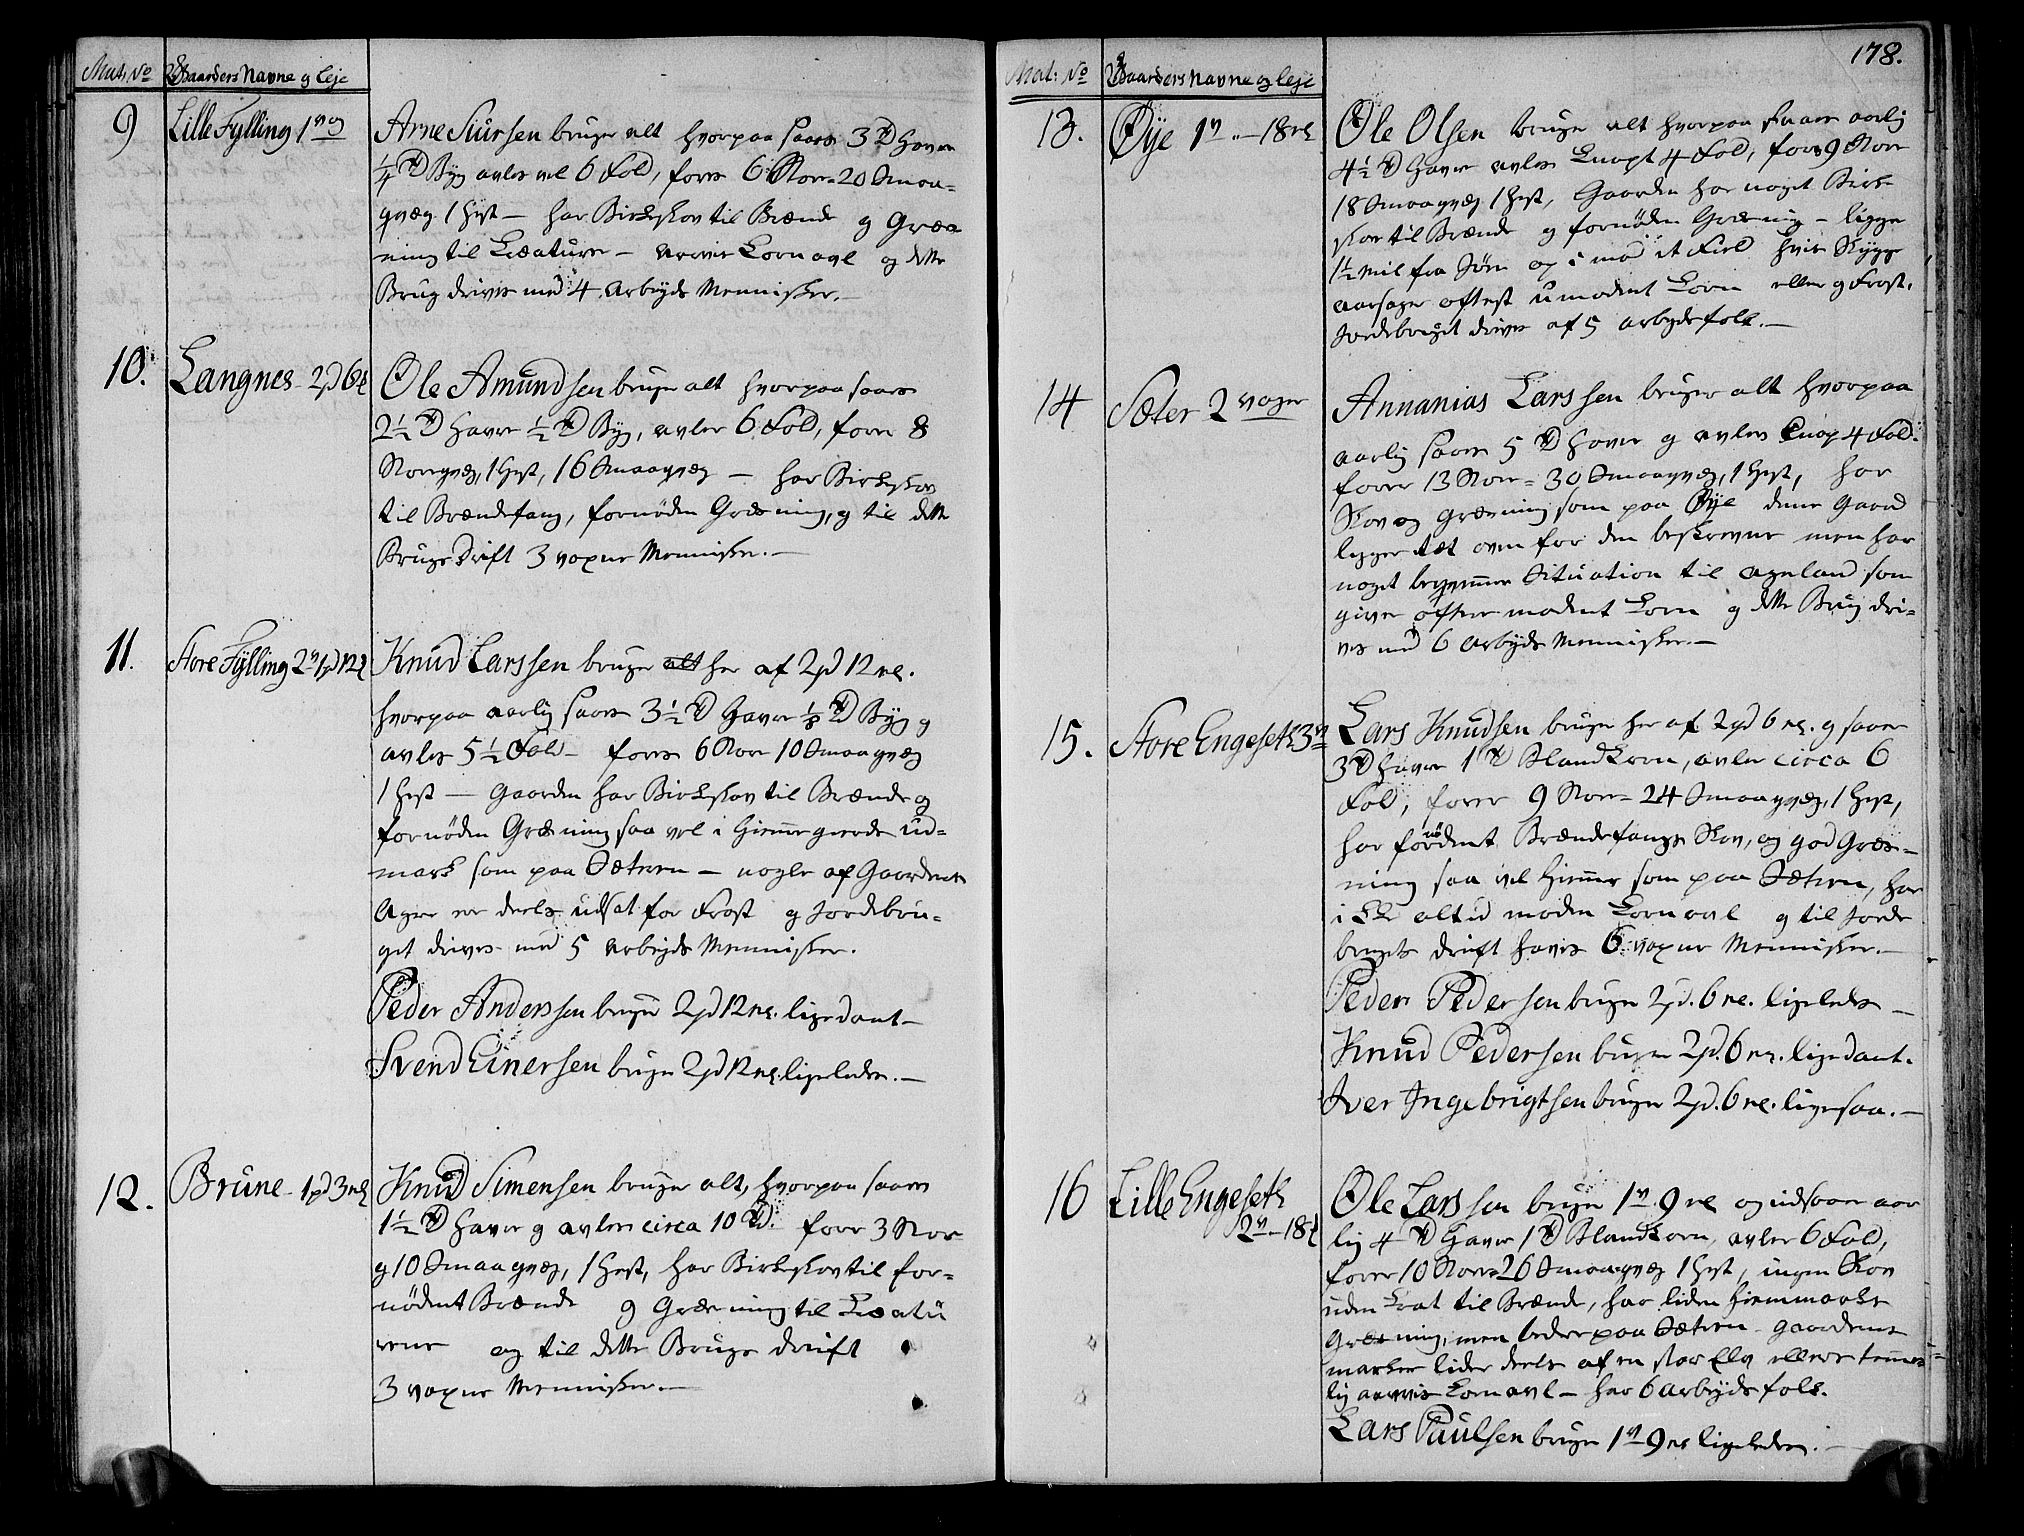 Mat: No Gaarders Navne og Leje
9 Lille Fylling 1 vog
Arne Siursen bruger alt hvorpaa saaes 3 Td Havre
1/4 Td Byg avles vel 6 Fold, fores 6 Stor= 20 Smaa=
qvæg 1 Hest – har Birkeskov til Brænde og Græs
ning til Creaturer – Kornavl og dette
Brug drives med 4 Arbejds Mennisker.–
10. Langnes – 2 pd 6
Ole Amundsen bruger alt hvorpaa saaes
2 1/2 Td Havre 1/2 Td Byg, avler 6 Fold, foer 8
Storqvæg, 1 Hest, 16 Smaaqvæg – har Birkeskov
til Brændefang, fornøden Græsning, og til dette
Brugs Drift 3 voxne Mennisker.–
11. Store Fylling 2 v 1 pd 12
Knud Larssen bruger alt her af 2 pd 12 mk.
hvorpaa aarlig saaes 3 1/2 Td Havre 1/8 Td Byg og
avles 5 1/2 Fold – fores 6 Stor 10 Smaaqvæg
1 Hest – Gaarden har Birkeskov til Brænde og
fornøden Græsning saa vel i Hiemme giærde ud=
mark som paa Sæteren – nogle af Gaardens
Agre er deels udsat for Frost og Jordbru=
get drives med 5 Arbejds Mennisker.
Peder Anderssen bruger 2 pd 12 mk. ligedant –
Svend Einersen bruger 2 pd 12 mk. ligeledes.–
12. Brune – 1 pd 3 mk
Knud Simensen bruger alt, hvorpaa saaes
1 1/2 Td Havre og avles circa 10 Td. foer 3 Stor
og 10 Smaaqvæg, 1 Hest, har Birkeskov til for=
nødent Brænde og Græsning til Creatu
rene og til dette Brugs drift
3 voxne Mennisker.–
178.
Mat: No Gaarders Navne og Leje
13. Øye 1 v „ – 18 mk
Ole Olsen bruger alt hvorpaa saaes aarlig
4 1/2 Td Havre avles knapt 4 Fold, fores 9 Stor
18 Smaaqvæg 1 Hest, Gaarden har noget Birke
skov til Brænde og fornøden Græsning – ligger
1/2 Mil fra Søen op i mod et Field hvis Skygge
aarsager oftest umodent Korn eller og Frost,
Jordebruget drives af 5 arbejdsfolk.–
14 Sæter 2 voger
Annanias Larssen bruger alt hvorpaa
aarlig saaes 5 Td Havre og avles knap 4 Fold.
forer 13 Stor= 30 Smaaqvæg, 1 Hest, har
Skov og Græsning som paa Øye denne Gaard
ligger tæt oven for den beskrevne men har
noget beqvemmere Situation til ageland som
giver oftere modent Korn og dette Brug dri=
ves med 6 Arbejds Mennisker.–
15. Store Engeseth 3 v
Lars Knudsen bruger her af 2 pd 6 mk. og saaer
3 Td Havre 1 Td Blandkorn, avler circa 6
Fold, forer 9 Stor= 24 Smaaqvæg, 1 Hest,
har fornødent Brændefangs Skov, og god Græs=
ning saa vel hjemme som paa Sæteren, har
ikke altid moden Kornavl og til Jorde
brugets drift haves 6 voxne Mennisker.–
Peder Pedersen bruger 2 pd. 6 mk. ligeledes –
Knud Pedersen bruger 2 pd. 6 mk. ligedant.
Iver Ingebrigtsen bruger 2 pd. 6 mk. ligesaa.–
16 Lille Engeseth
2 v – 18
Ole Larssen bruger 1 v. 9 mk og udsaaer aar
lig 4 Td Havre 1 Td Blandkorn, avler 6 Fold,
forer 10 Stor= 26 Smaaqvæg 1 Hest, ingen Skov
uden Krat til Brænde, har liden Hiemmarks
Græsning, men bedre paa Sæteren – Gaardens
marker lider deels af en stor Elv ellers temme=
lig aarvis Kornavl – har 6 Arbejdsfolk.
Lars Paulsen bruger 1 v 9 mk ligeledes.–